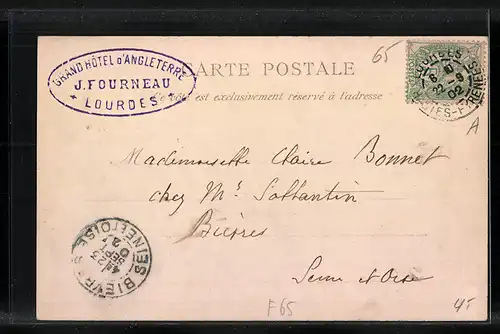 65
GRAND HÔTEL D'ANGLETERRE
J. FOURNEAU
LOURDES
CARTE POSTALE
Ce côté est exclusivement réservé à l'adresse
LOURDES
22 -9
02
A
Mademoiselle Claire Bonnet
chez Mr Soltantin
Bièvres
Seine et Oise
BIEVRES
SEINE ET OISE
F65
45